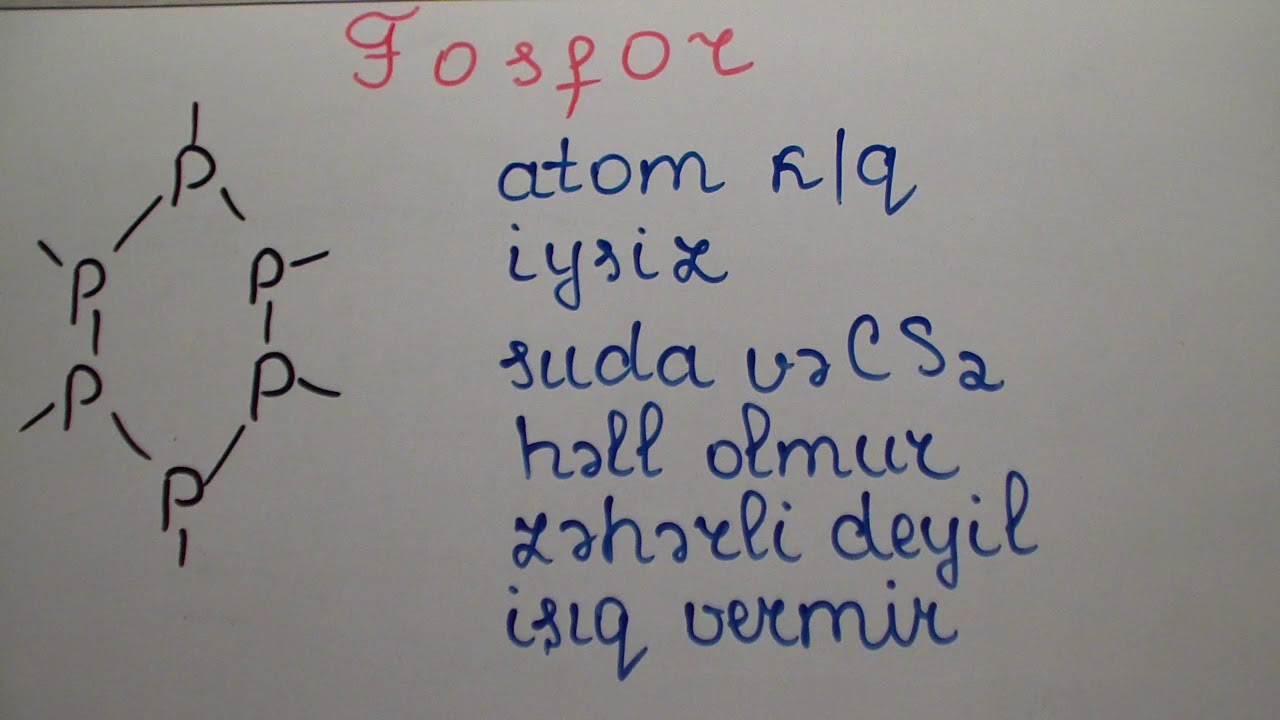 Fosfor
P
P
P
P
P
P
atom k/q
iysiz
suda və CS₂
həll olmur
zəhərli deyil
işıq vermir